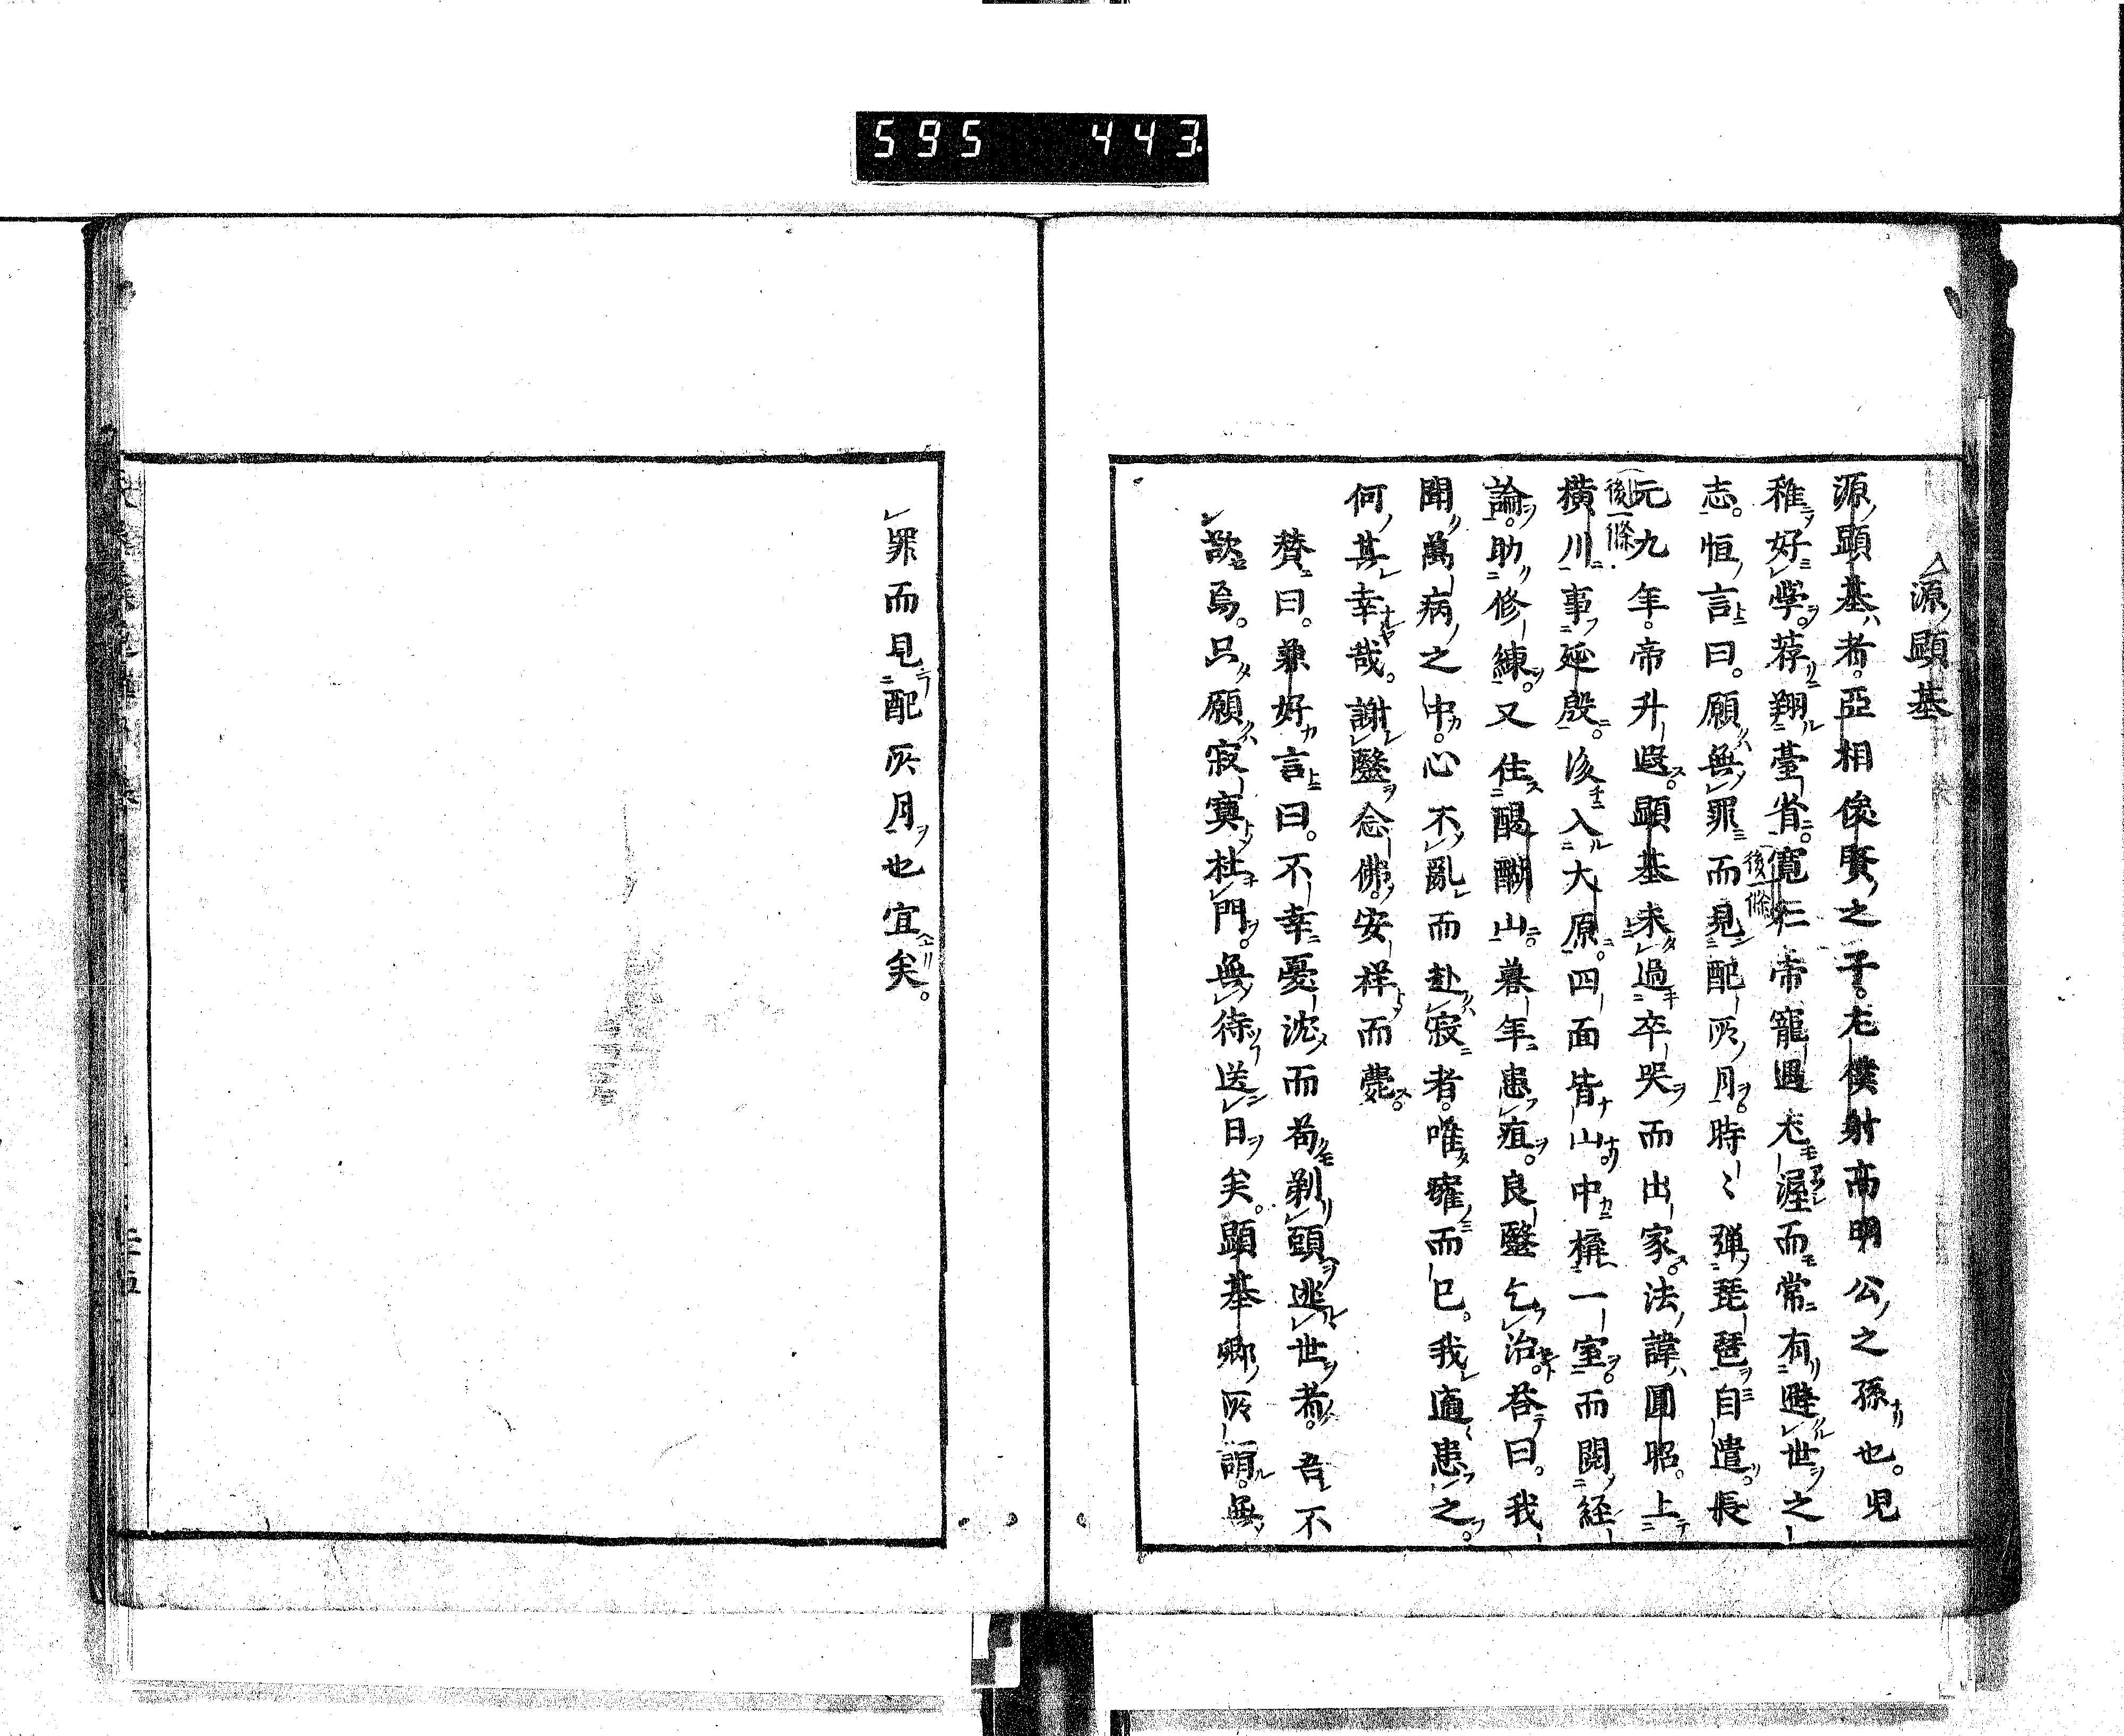 595 443.
源顯基
源顯基者。亞相俊賢之子。左僕射高明公之孫也。兒
稚好學。荐翔臺省。寛仁帝寵遇尤渥而常有避世之
後一條
志。恒言曰。願無罪而見配所月。時〻彈琵琶自遣。長
元九年。帝升遐。顯基未過卒哭而出家。法諱圓昭。上
後一條
橫川事延殷。後入大原。四面皆山。中構一室。而閱経
論。助修練。又住醍醐山。暮年患疽。良醫乞治。荅曰。我
聞萬病之中。心不亂而赴寂者。唯癰而已。我適患之。
何其幸哉。謝醫念佛。安祥而薨。
賛曰。兼好言曰。不幸憂沈而苟剃頭逃世者。吾不
歆焉。只願寂寞杜門。無待送日矣。顯基卿所謂。無
罪而見配所月也宜矣。